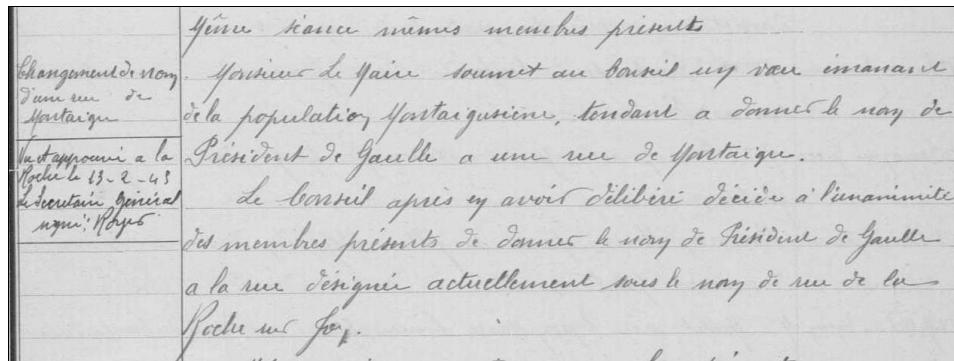 Même séance mêmes membres présents
Changement de nom
d'une rue de
Montaigu
Vu et approuvé a la
Roche le 13-2-45
Le Secrétaire Général
signé: Royer
Monsieur Le Maire soumet au Conseil un vœu émanant
de la population Montaigusiène, tendant a donner le nom de
Président de Gaulle a une rue de Montaigu.
Le Conseil après en avoir délibéré décide à l'unanimité
des membres présents de donner le nom de Président de Gaulle
a la rue désignée actuellement sous le nom de rue de la
Roche sur Yon.